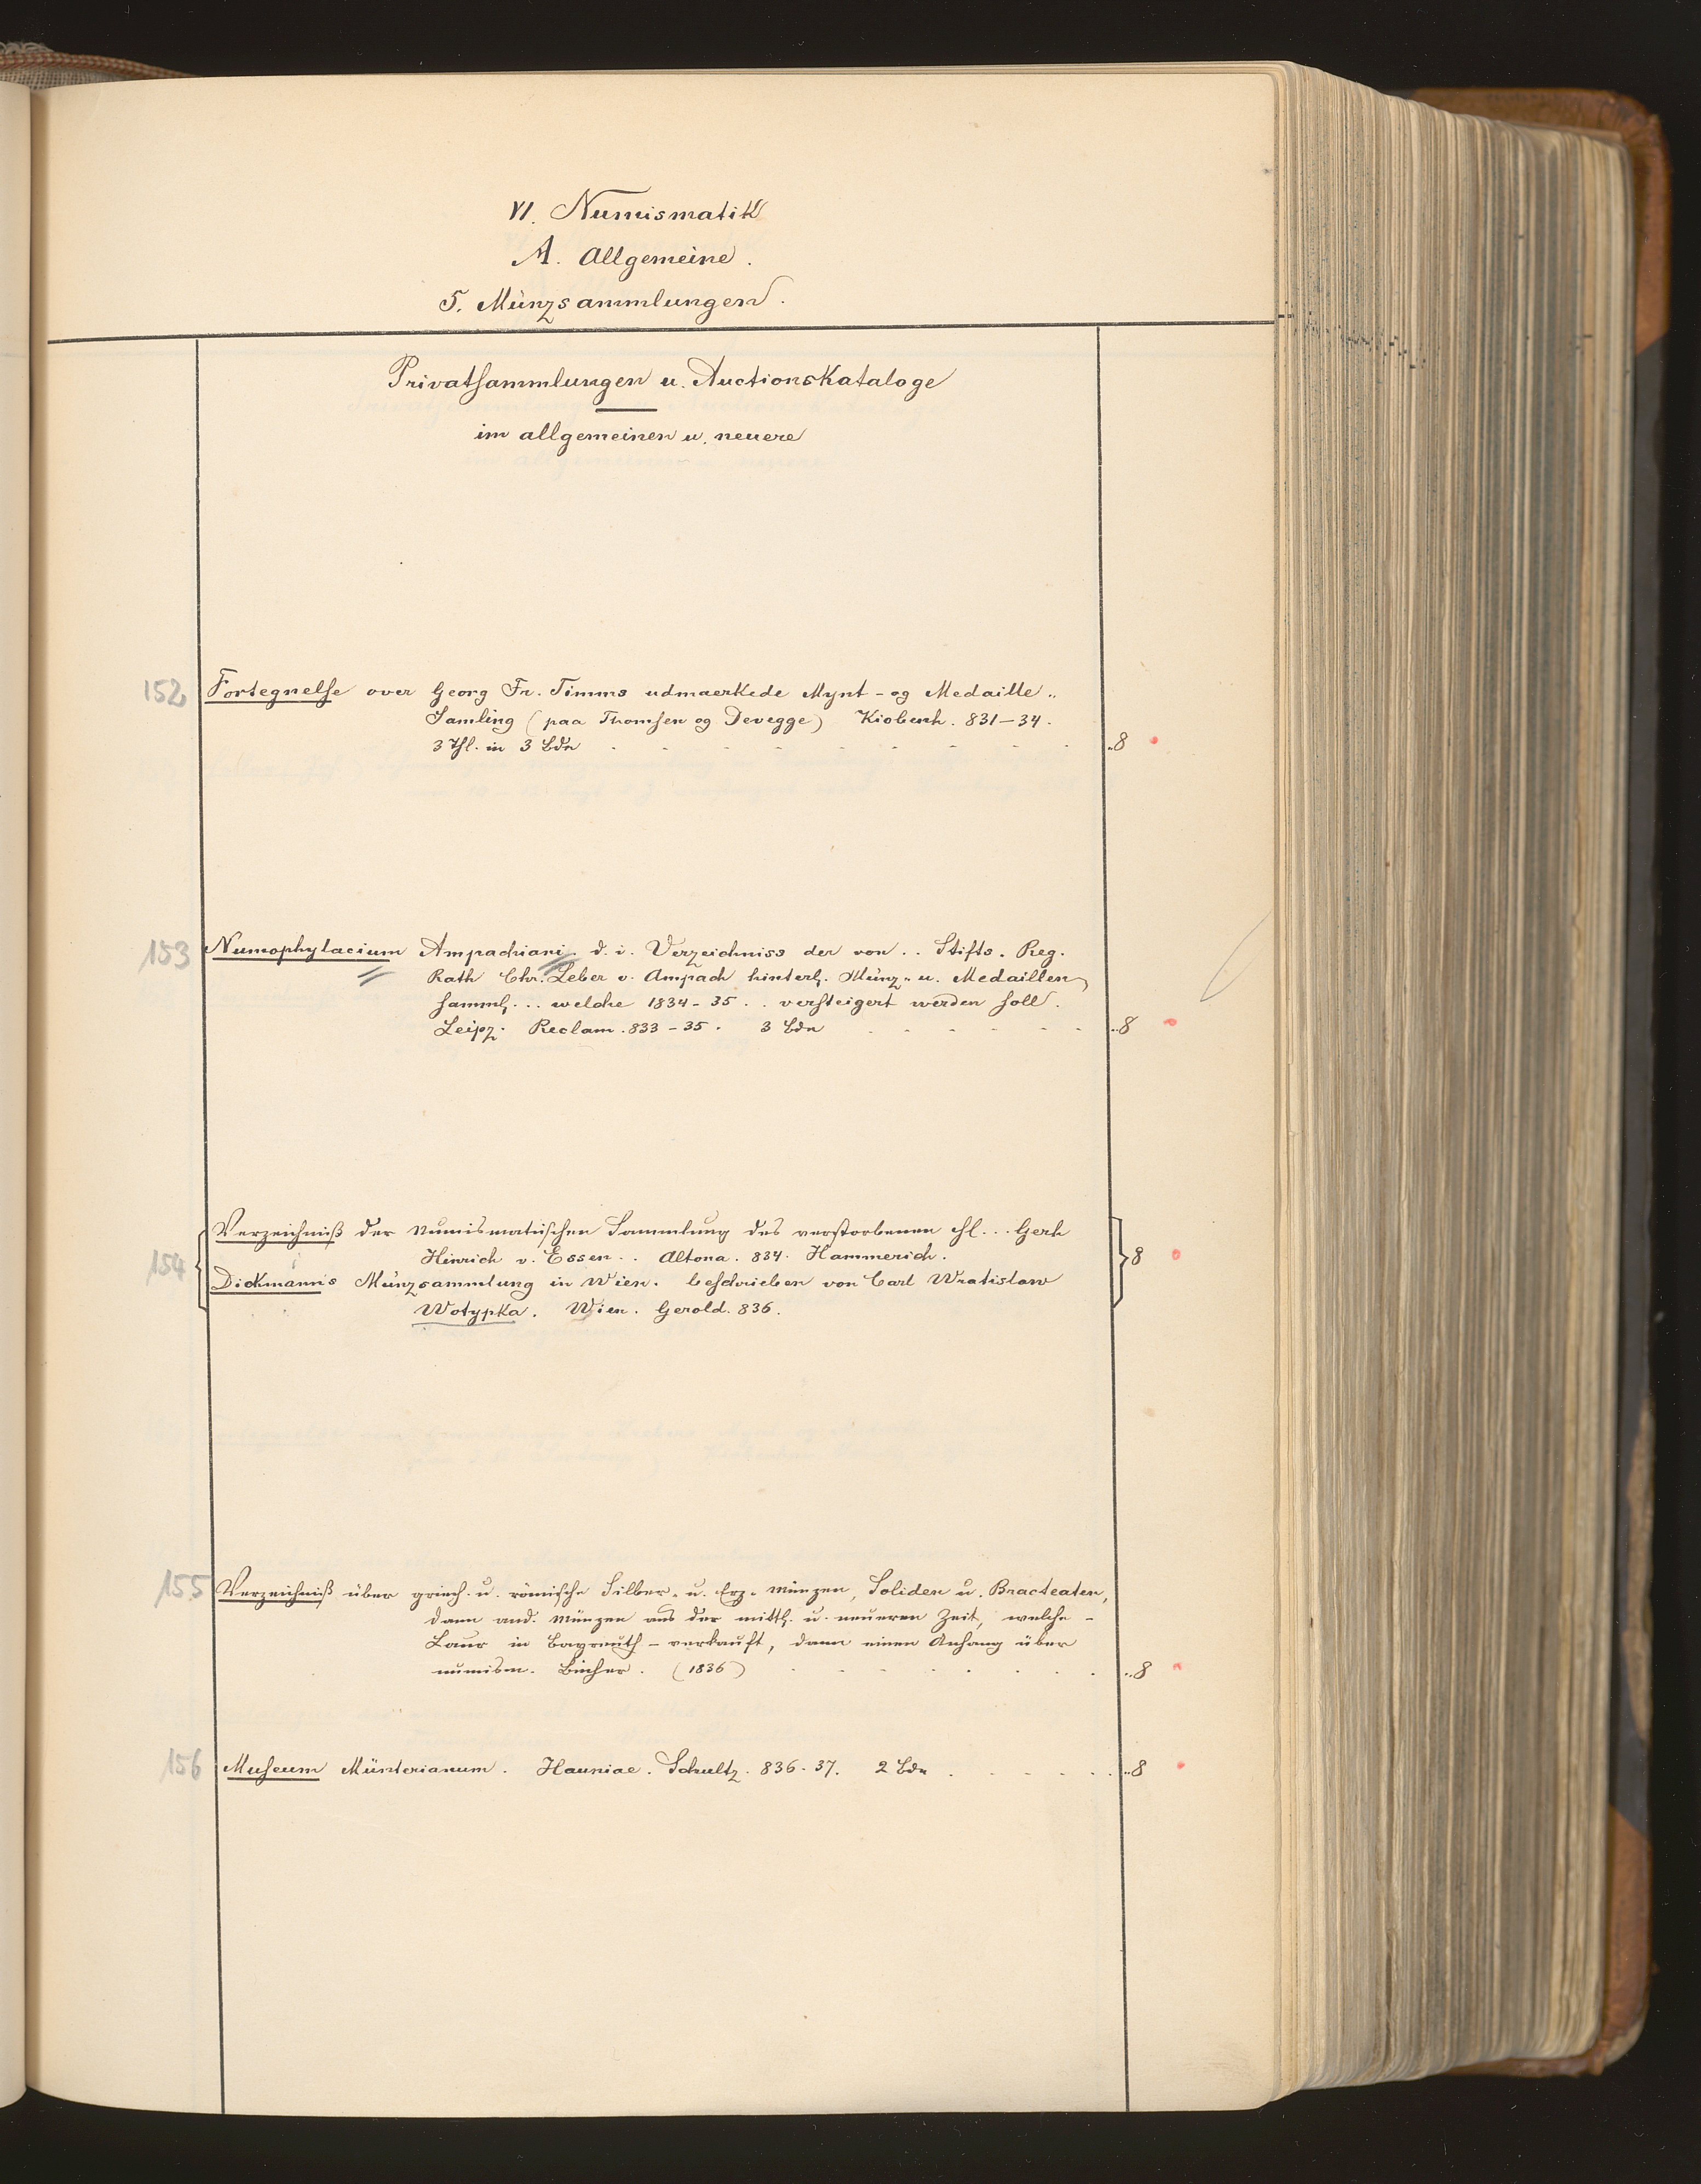 VI. Numismatik
A. Allgemeine.
5. Münzsammlungen.
Privatsammlungen u. Auctionskataloge
im allgemeinen u. neuere
152 Fortegnelse over Georg Fr. Timms udmaerkede Mynt- og Medaille-
Samling (paa Thomsen og Devegge) Kiobenh. 831–34.
3 Thl. in 3 Bdn . . . . . . . . . 8
153 Numophylacium Ampachiani. d. i. Verzeichniss der von .. Stifts. Reg.
Rath Chr. Leber v. Ampach hinterl. Münz- u. Medaillen
samml. ... welche 1834–35 .. versteigert werden soll.
Leipz. Reclam. 833–35. 3 Bdn . . . . . . 8
154 Verzeichniß der numismatischen Sammlung des verstorbenen H... Gerh
Hinrich v. Essen .. Altona. 834. Hammerich. 8
Dickmanns Münzsammlung in Wien. beschrieben von Carl Wratislaw
Wotypka. Wien. Gerold. 836.
155 Verzeichniß über griech. u. römische Silber- u. Erz-Münzen, Soliden u. Bracteaten,
dann and. Münzen aus der mittl. u. neueren Zeit, welche –
Laur in Bayreuth – verkauft, dann einen Anhang über
numism. Bücher. (1836) . . . . . . . . 8
156 Museum Münterianum. Hauniae. Schultz. 836-37. 2 Bdn . . . . . . 8